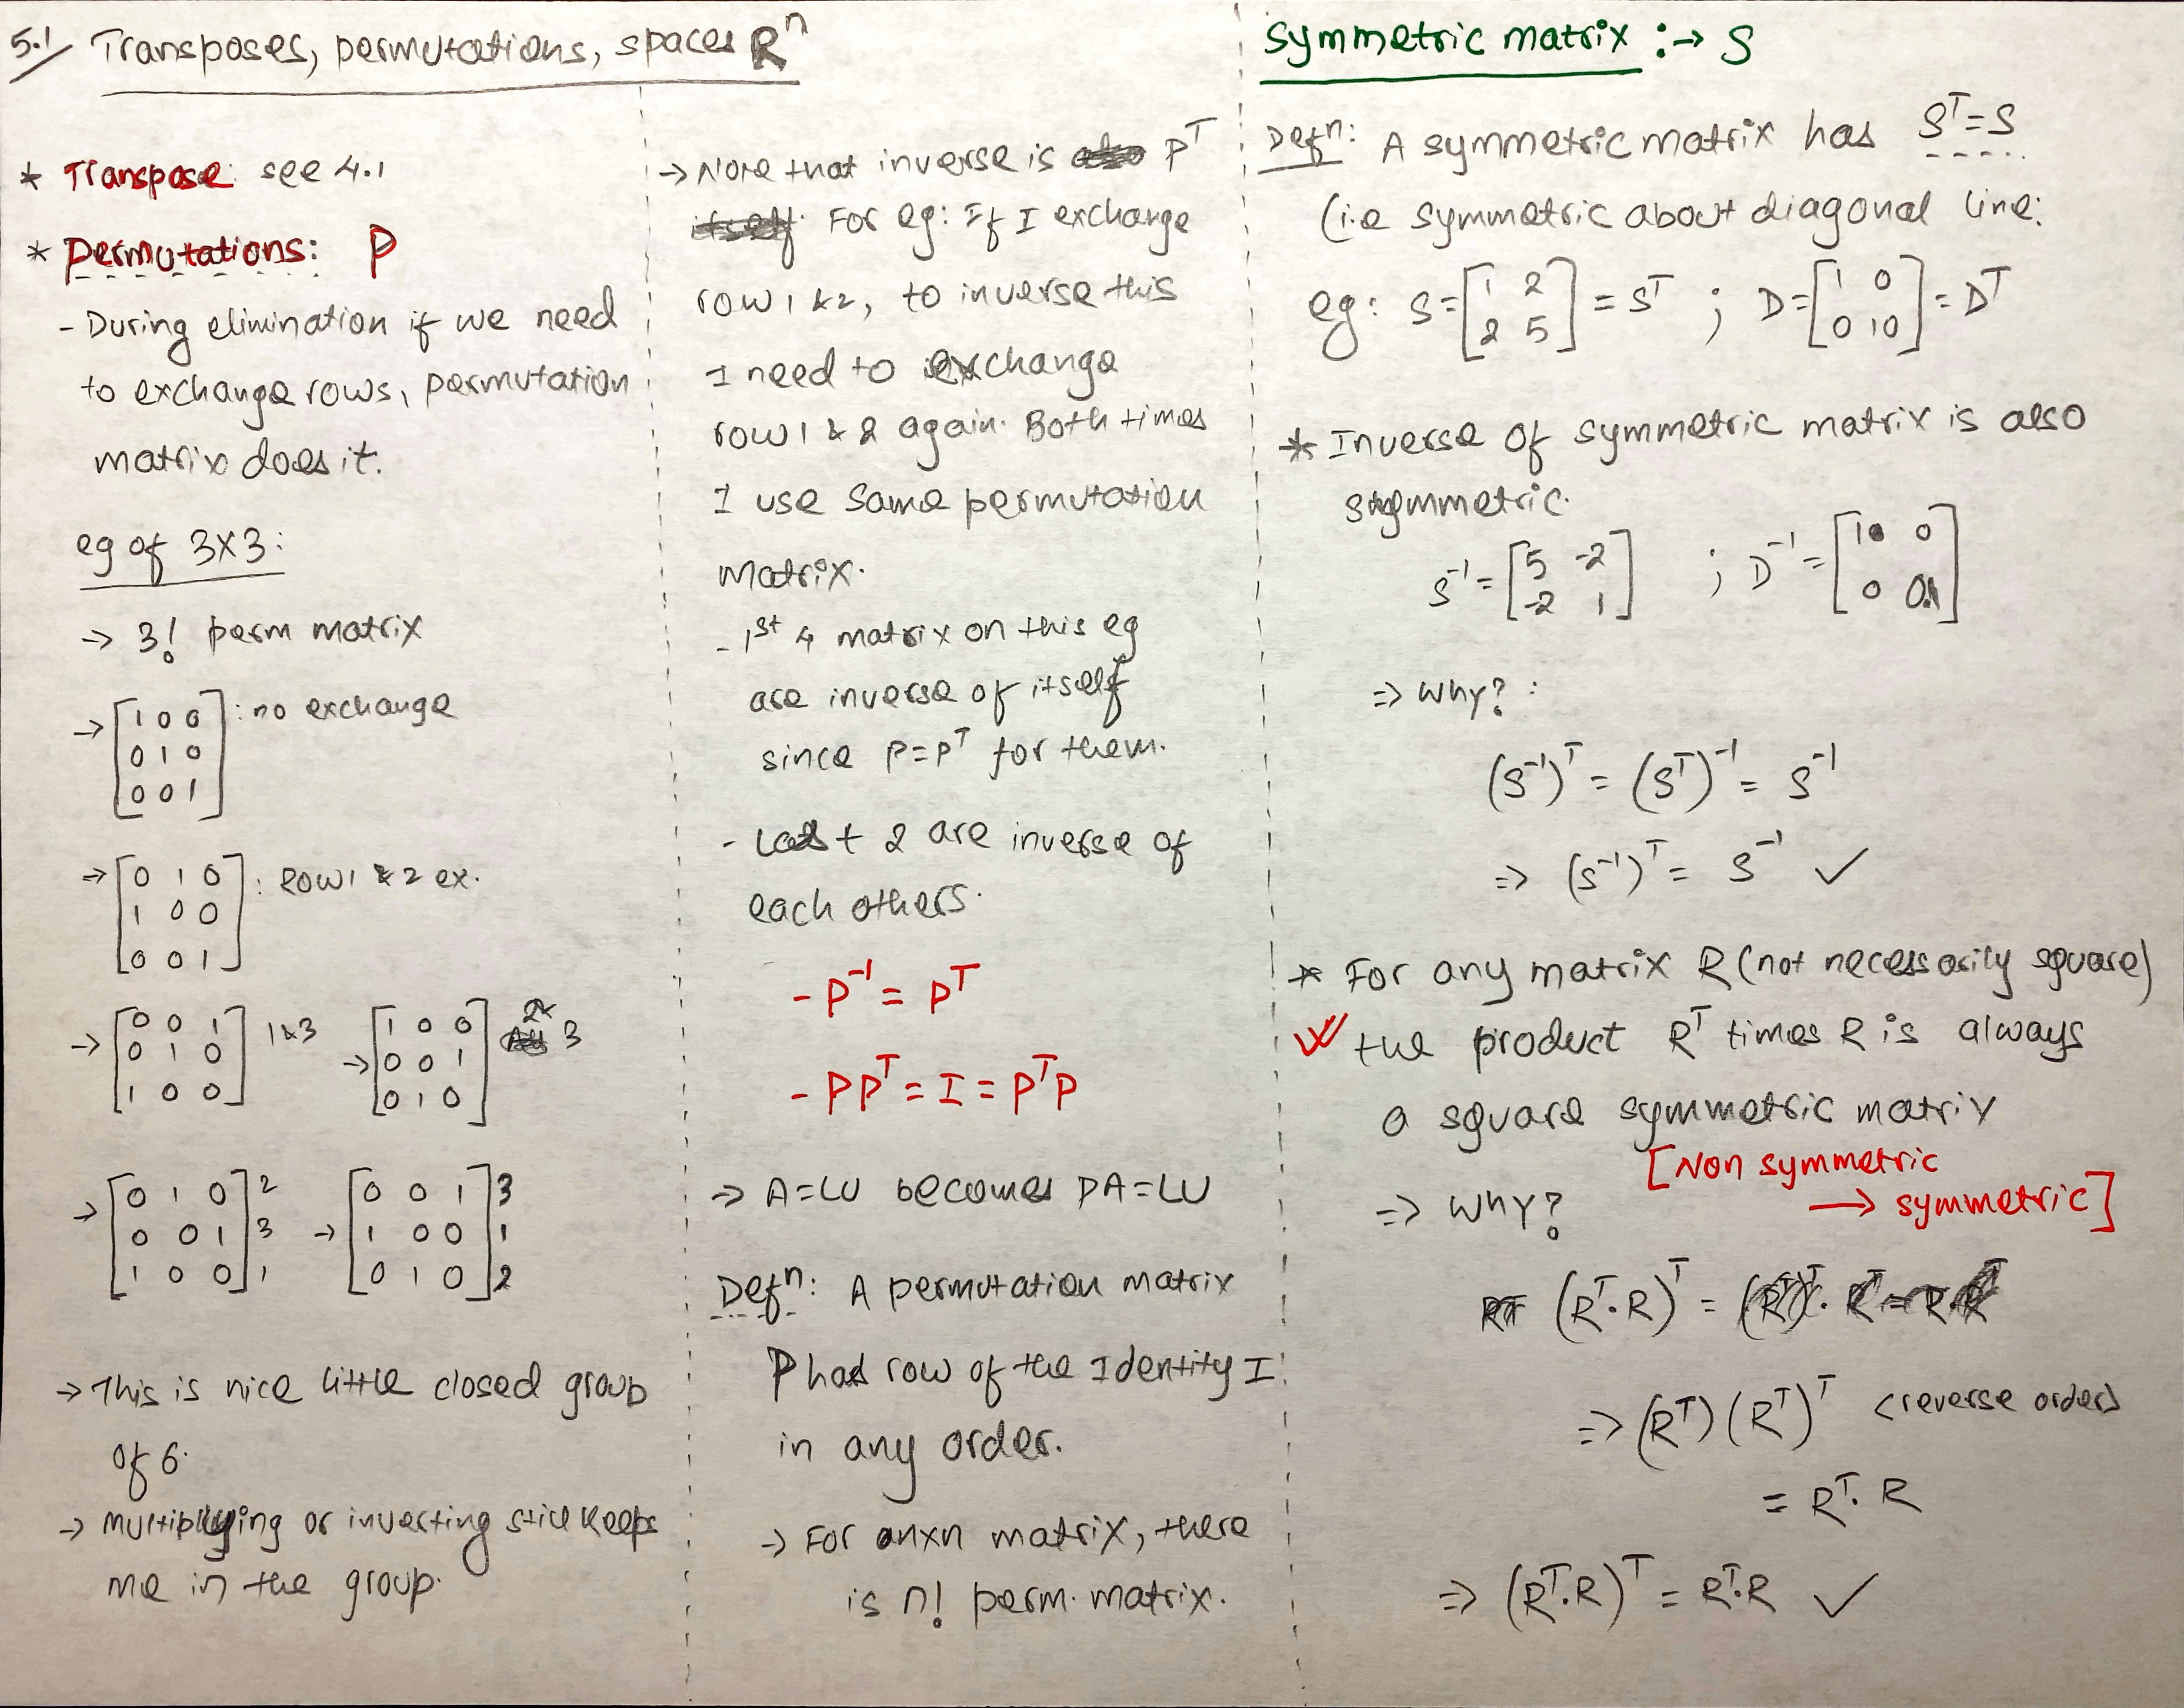 5.1/ Transposes, permutations, spaces Rⁿ
* Transpose: see 4.1
* Permutations: P
- During elimination if we need
to exchange rows, permutation
matrix does it.
eg of 3x3:
→ 3! perm matrix
→ [1 0 0] : no exchange
[0 1 0]
[0 0 1]
→ [0 1 0] : Row 1 & 2 ex.
[1 0 0]
[0 0 1]
→ [0 0 1] 1&3 → [1 0 0] 2& 3
[0 1 0] [0 0 1]
[1 0 0] [0 1 0]
→ [0 1 0] 2 → [0 0 1] 3
[0 0 1] 3 [1 0 0] 1
[1 0 0] 1 [0 1 0] 2
→ This is nice little closed group
of 6.
→ Multiplying or inverting still keeps
me in the group.
→ Note that inverse is Pᵀ
For eg: If I exchange
row 1 & 2, to inverse this
I need to exchange
row 1 & 2 again. Both times
I use same permutation
matrix.
- 1st 4 matrix on this eg
are inverse of itself
since P=Pᵀ for them.
- Last 2 are inverse of
each others.
- P⁻¹ = Pᵀ
- PPᵀ = I = PᵀP
→ A=LU becomes PA=LU
Defⁿ: A permutation matrix
P has row of the Identity I
in any order.
→ For nxn matrix, there
is n! perm. matrix.
Symmetric matrix :→ S
Defⁿ: A symmetric matrix has Sᵀ=S
(i.e symmetric about diagonal line:
eg: S=[1 2] = Sᵀ ; D=[1 0] = Dᵀ
[2 5] [0 10]
* Inverse of symmetric matrix is also
symmetric.
S⁻¹=[5 -2] ; D⁻¹=[1 0]
[-2 1] [0 0.1]
⇒ Why? :
(S⁻¹)ᵀ = (Sᵀ)⁻¹ = S⁻¹
⇒ (S⁻¹)ᵀ = S⁻¹ ✓
* For any matrix R (not necessarily square)
the product Rᵀ times R is always
a square symmetric matrix
[Non symmetric
→ symmetric]
⇒ Why?
(Rᵀ.R)ᵀ =
⇒ (Rᵀ)(Rᵀ)ᵀ (reverse order)
= Rᵀ. R
⇒ (Rᵀ.R)ᵀ = Rᵀ.R ✓